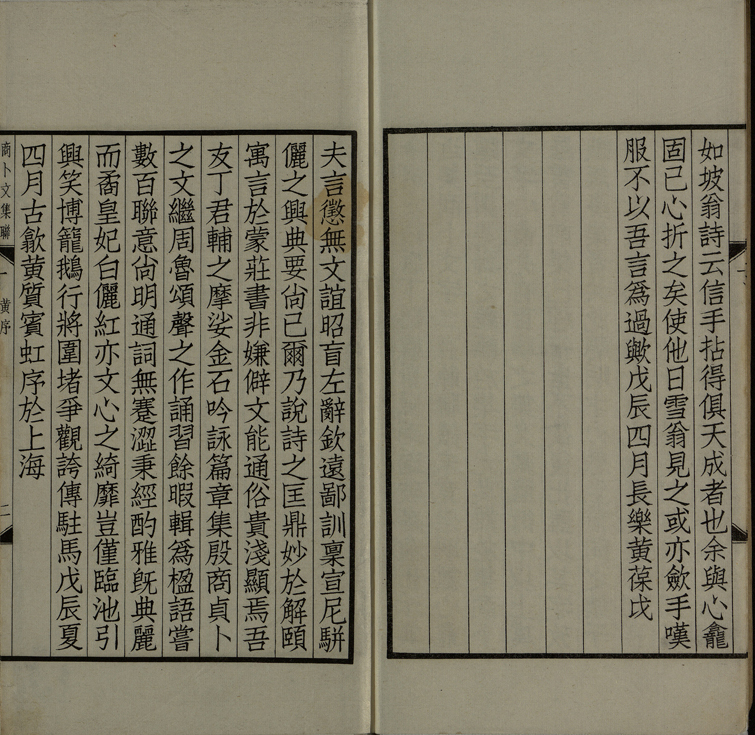 如坡翁詩云信手拈得俱天成者也余與心龕
固已心折之矣使他日雪翁見之或亦斂手嘆
服不以吾言爲過歟戊辰四月長樂黄葆戉
夫言懲無文誼昭盲左辭欽遠鄙訓稟宣尼駢
儷之興典要尙已爾乃說詩之匡鼎妙於解頤
寓言於蒙莊書非嫌僻文能通俗貴淺顯焉吾
友丁君輔之摩娑金石吟詠篇章集殷商貞卜
之文繼周魯頌聲之作誦習餘暇輯爲楹語嘗
數百聯意尙明通詞無蹇澀秉經酌雅旣典麗
而矞皇妃白儷紅亦文心之綺靡豈僅臨池引
興笑博籠鵝行將圍堵爭觀誇傳駐馬戊辰夏
四月古歙黄質賓虹序於上海
商卜文集聯 黄序 二